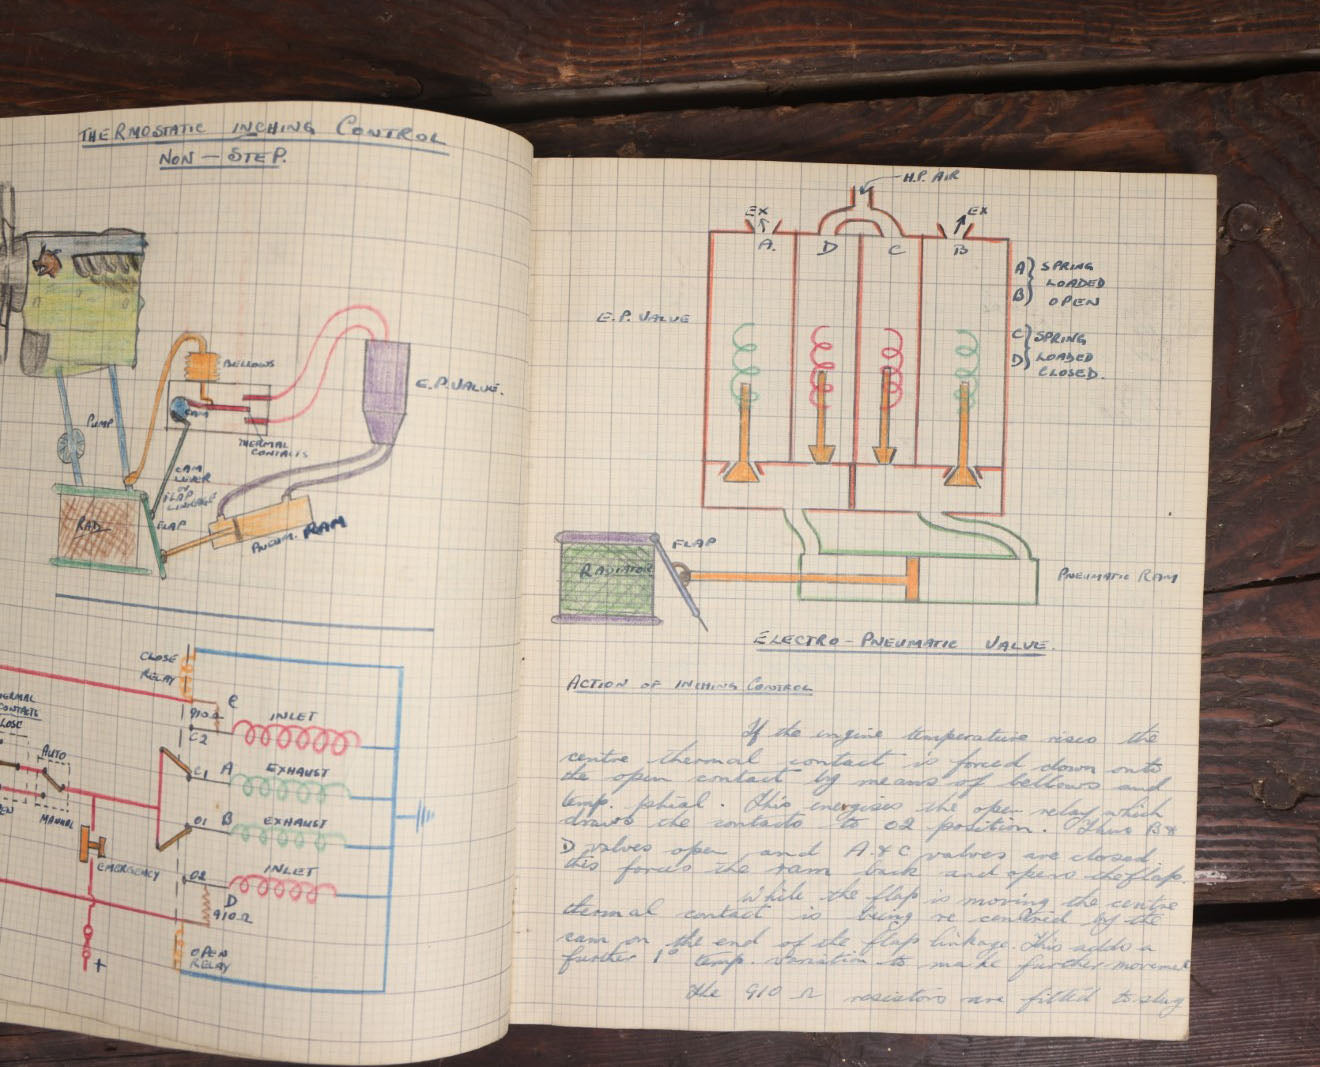 THERMOSTATIC INCHING CONTROL
NON - STEP.
BELLOWS
E.P. VALVE.
CAM
PUMP
THERMAL
CONTACTS
CAM
LEVER
FLAP
LINKAGE
RAD
FLAP
PNEUM. RAM
CLOSE
RELAY
910Ω
C
INLET
C2
THERMAL
CONTACTS
CLOSE
AUTO
C1
A
EXHAUST
MANUAL
O1
B
EXHAUST
EMERGENCY
O2
INLET
D
910Ω
OPEN
RELAY
+
H.P. AIR
EX
EX
A.
D
C
B
A} SPRING
LOADED
B} OPEN
E.P. VALVE
C} SPRING
D} LOADED
CLOSED.
FLAP
RADIATOR
PNEUMATIC RAM
ELECTRO-PNEUMATIC VALVE.
ACTION OF INCHING CONTROL
If the engine temperature rises the
centre thermal contact is forced down onto
the open contact by means of bellows and
temp. phial. This energises the open relay which
draws the contacts to O2 position. Thus B &
D valves open and A & C valves are closed
this forces the ram back and opens the flap.
While the flap is moving the centre
thermal contact is being re centred by the
cam on the end of the flap linkage. This adds a
further 1° temp. variation to make further movement
The 910 Ω resistors are fitted to